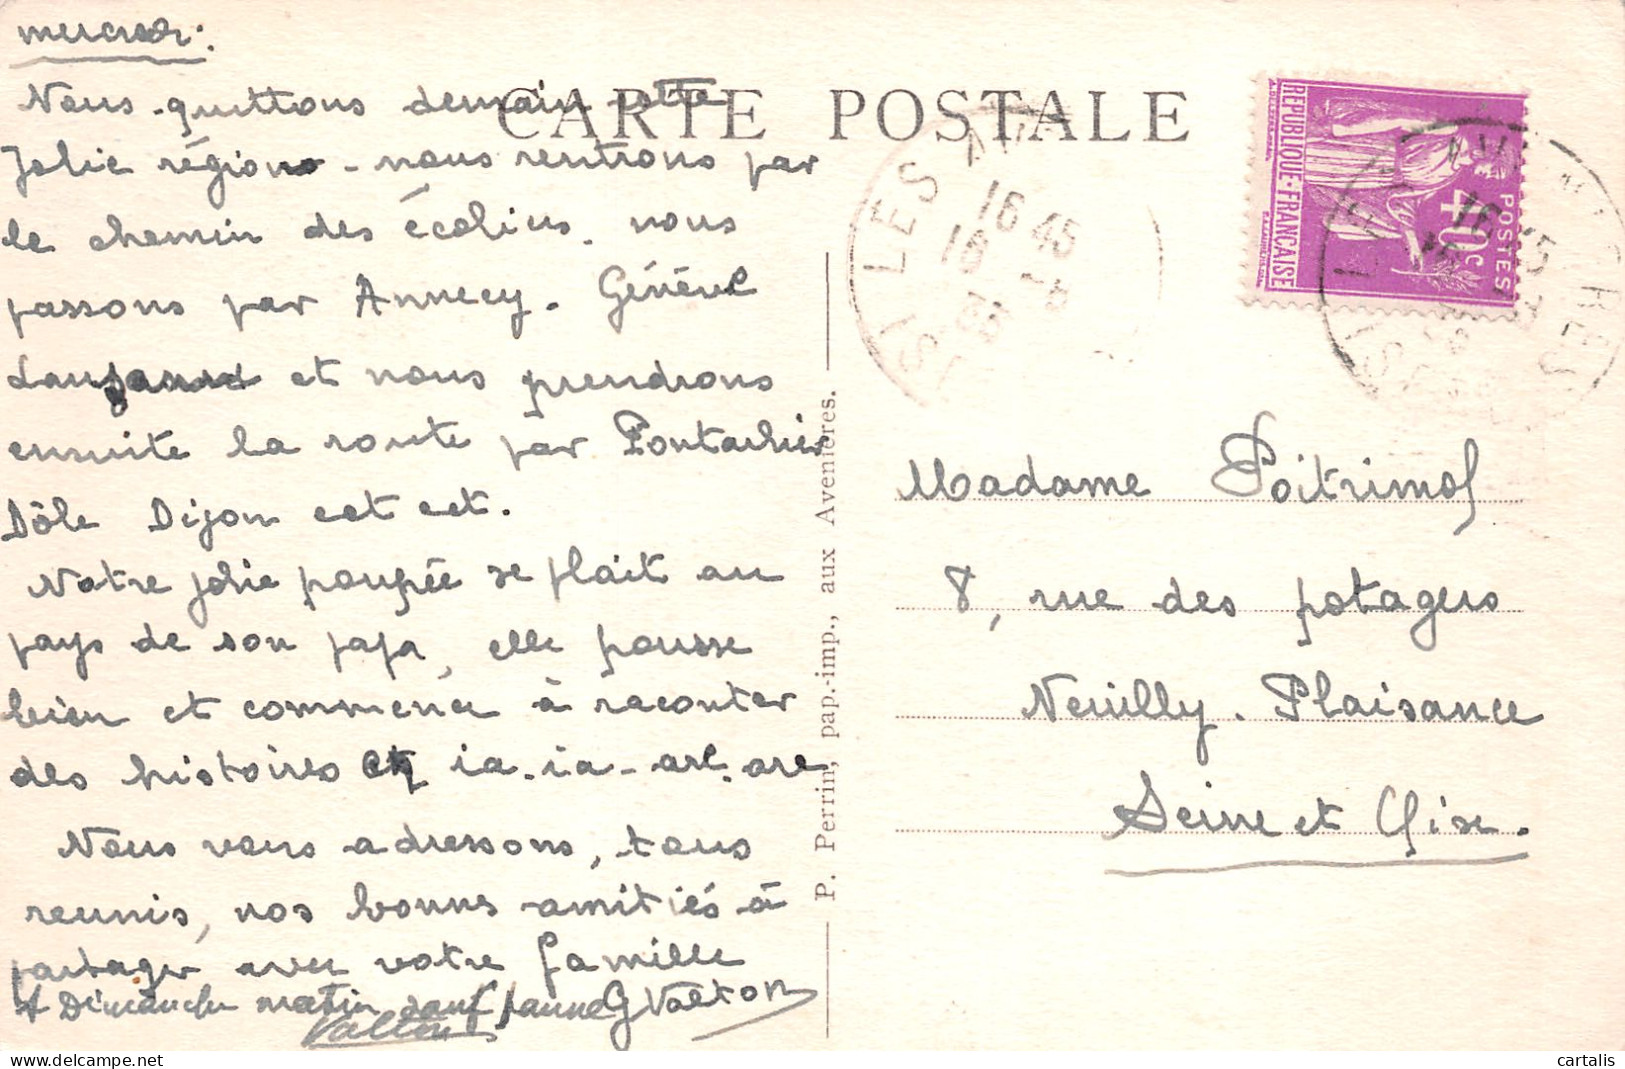 mercredi.
Nous quittons demain cette
jolie région - nous rentrons par
le chemin des écoliers. nous
passons par Annecy. Genève
Lausanne et nous prendrons
ensuite la route par Pontarlier
Dôle Dijon ect ect.
Notre jolie poupée se plait au
pays de son papa, elle pousse
bien et commence à raconter
des histoires ia-ia-are-are
Nous vous adressons, tous
reunis, nos bonnes amitiés à
partager avec votre famille
A Dimanche matin sauf panne GValton
Valton
CARTE POSTALE
P. Perrin, pap.-imp., aux Avenières.
LES AV
16 45
16 -8
35
REPUBLIQUE-FRANÇAISE
40c
POSTES
LES AVENIERES
16 45
Madame Poitrimol
8, rue des potagers
Neuilly-Plaisance
Seine et Oise.
cartalis